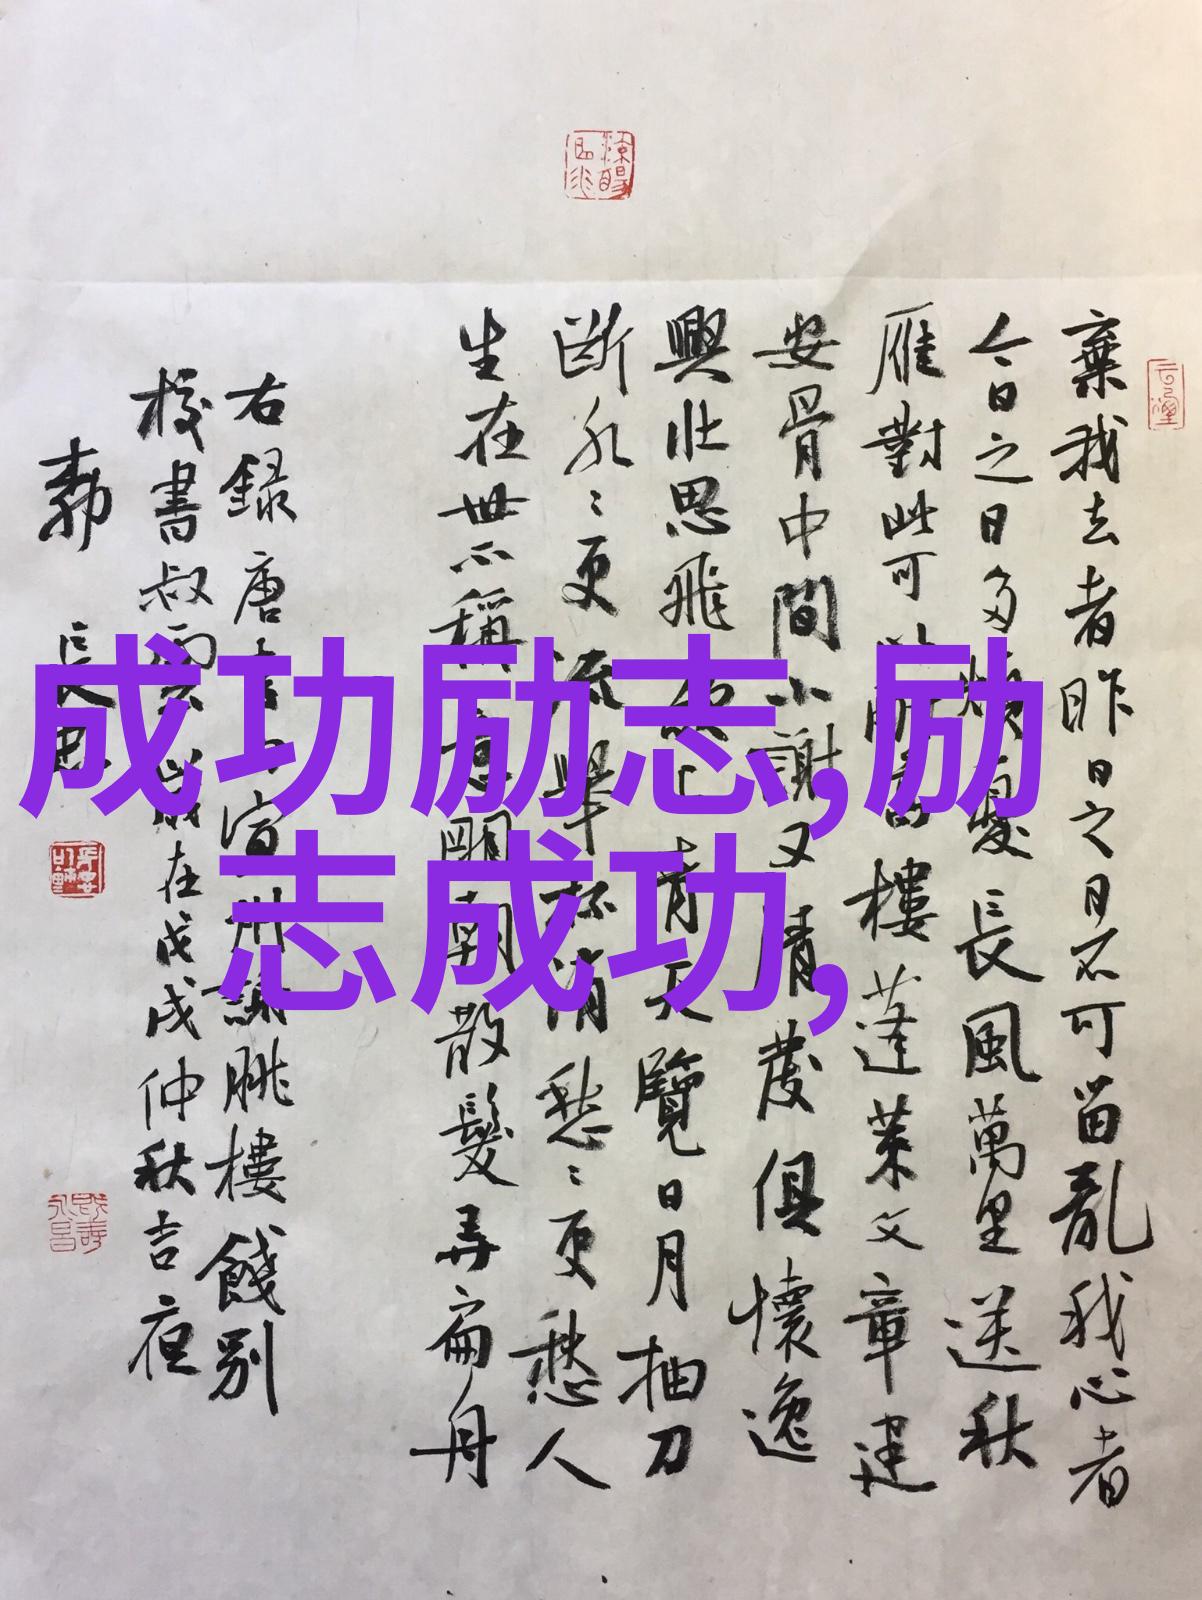 成功励志,励
志成功,
棄我去者昨日之日不可留亂我心者
今日之日多煩憂長風萬里送秋
雁對此可以酣高樓蓬萊文章建
安骨中間小謝又清發俱懷逸
興壯思飛欲上青天覽日月抽刀
斷水〻更流舉杯消愁〻更愁人
生在世不稱意明朝散髮弄扁舟
右録唐李白宣州謝朓樓餞別
校書叔雲歲在戊戌仲秋吉夜
長忠